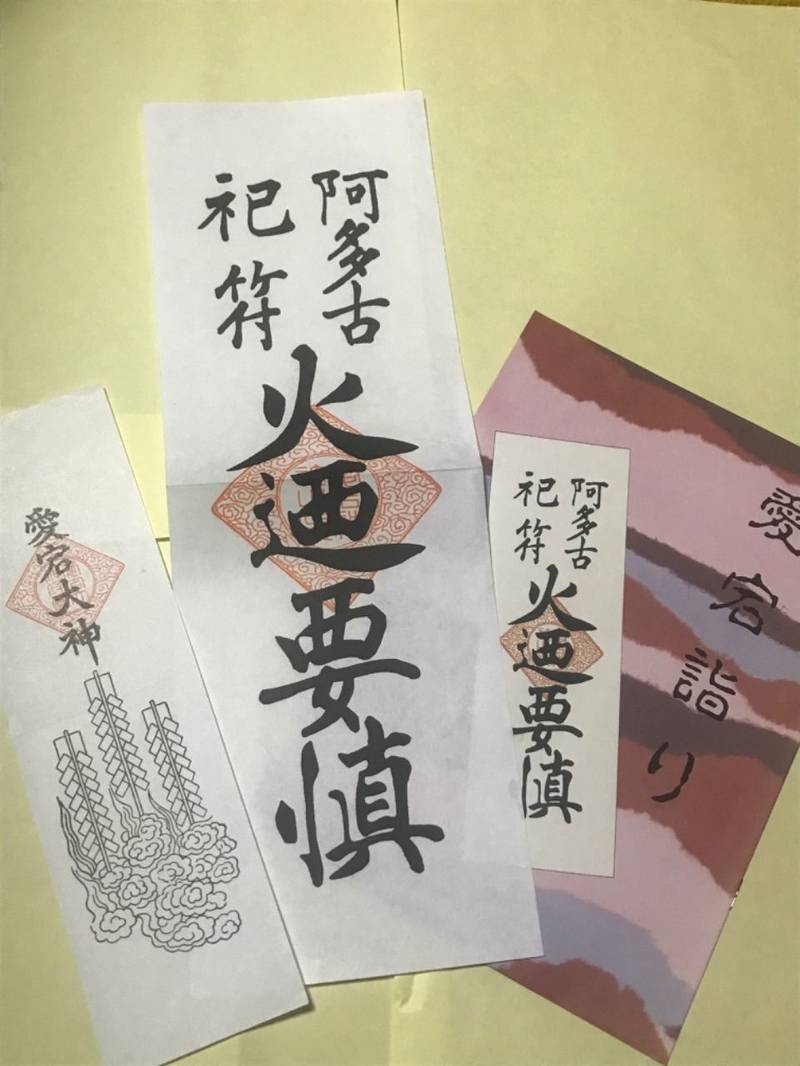 愛宕大神
阿多古
祀符
火迺要慎
阿多古
祀符
火迺要慎
愛宕詣り